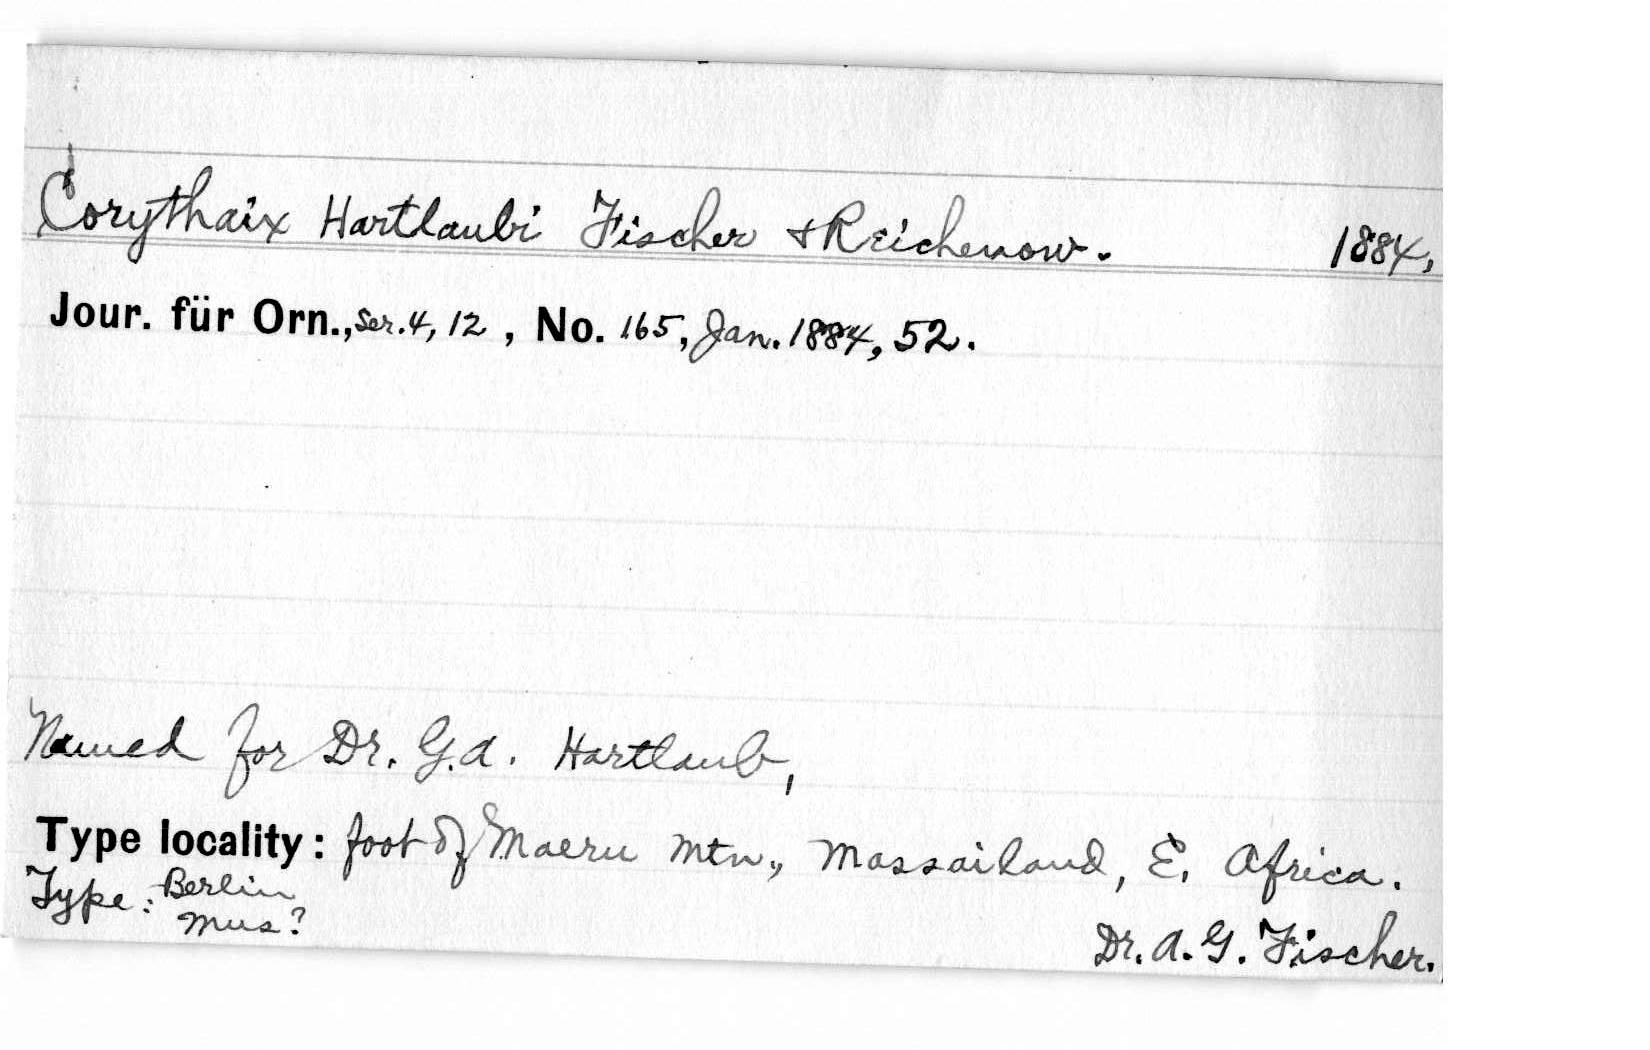 Corythaix Hartlaubi Fischer & Reichenow. 1884,
Jour. für Orn., Ser. 4, 12 , No. 165, Jan. 1884, 52.
Named for Dr. G. A. Hartlaub,
Type locality: foot of Maeru Mtn., Massailand, E. Africa.
Type: Berlin
Mus?
Dr. A. G. Fischer.